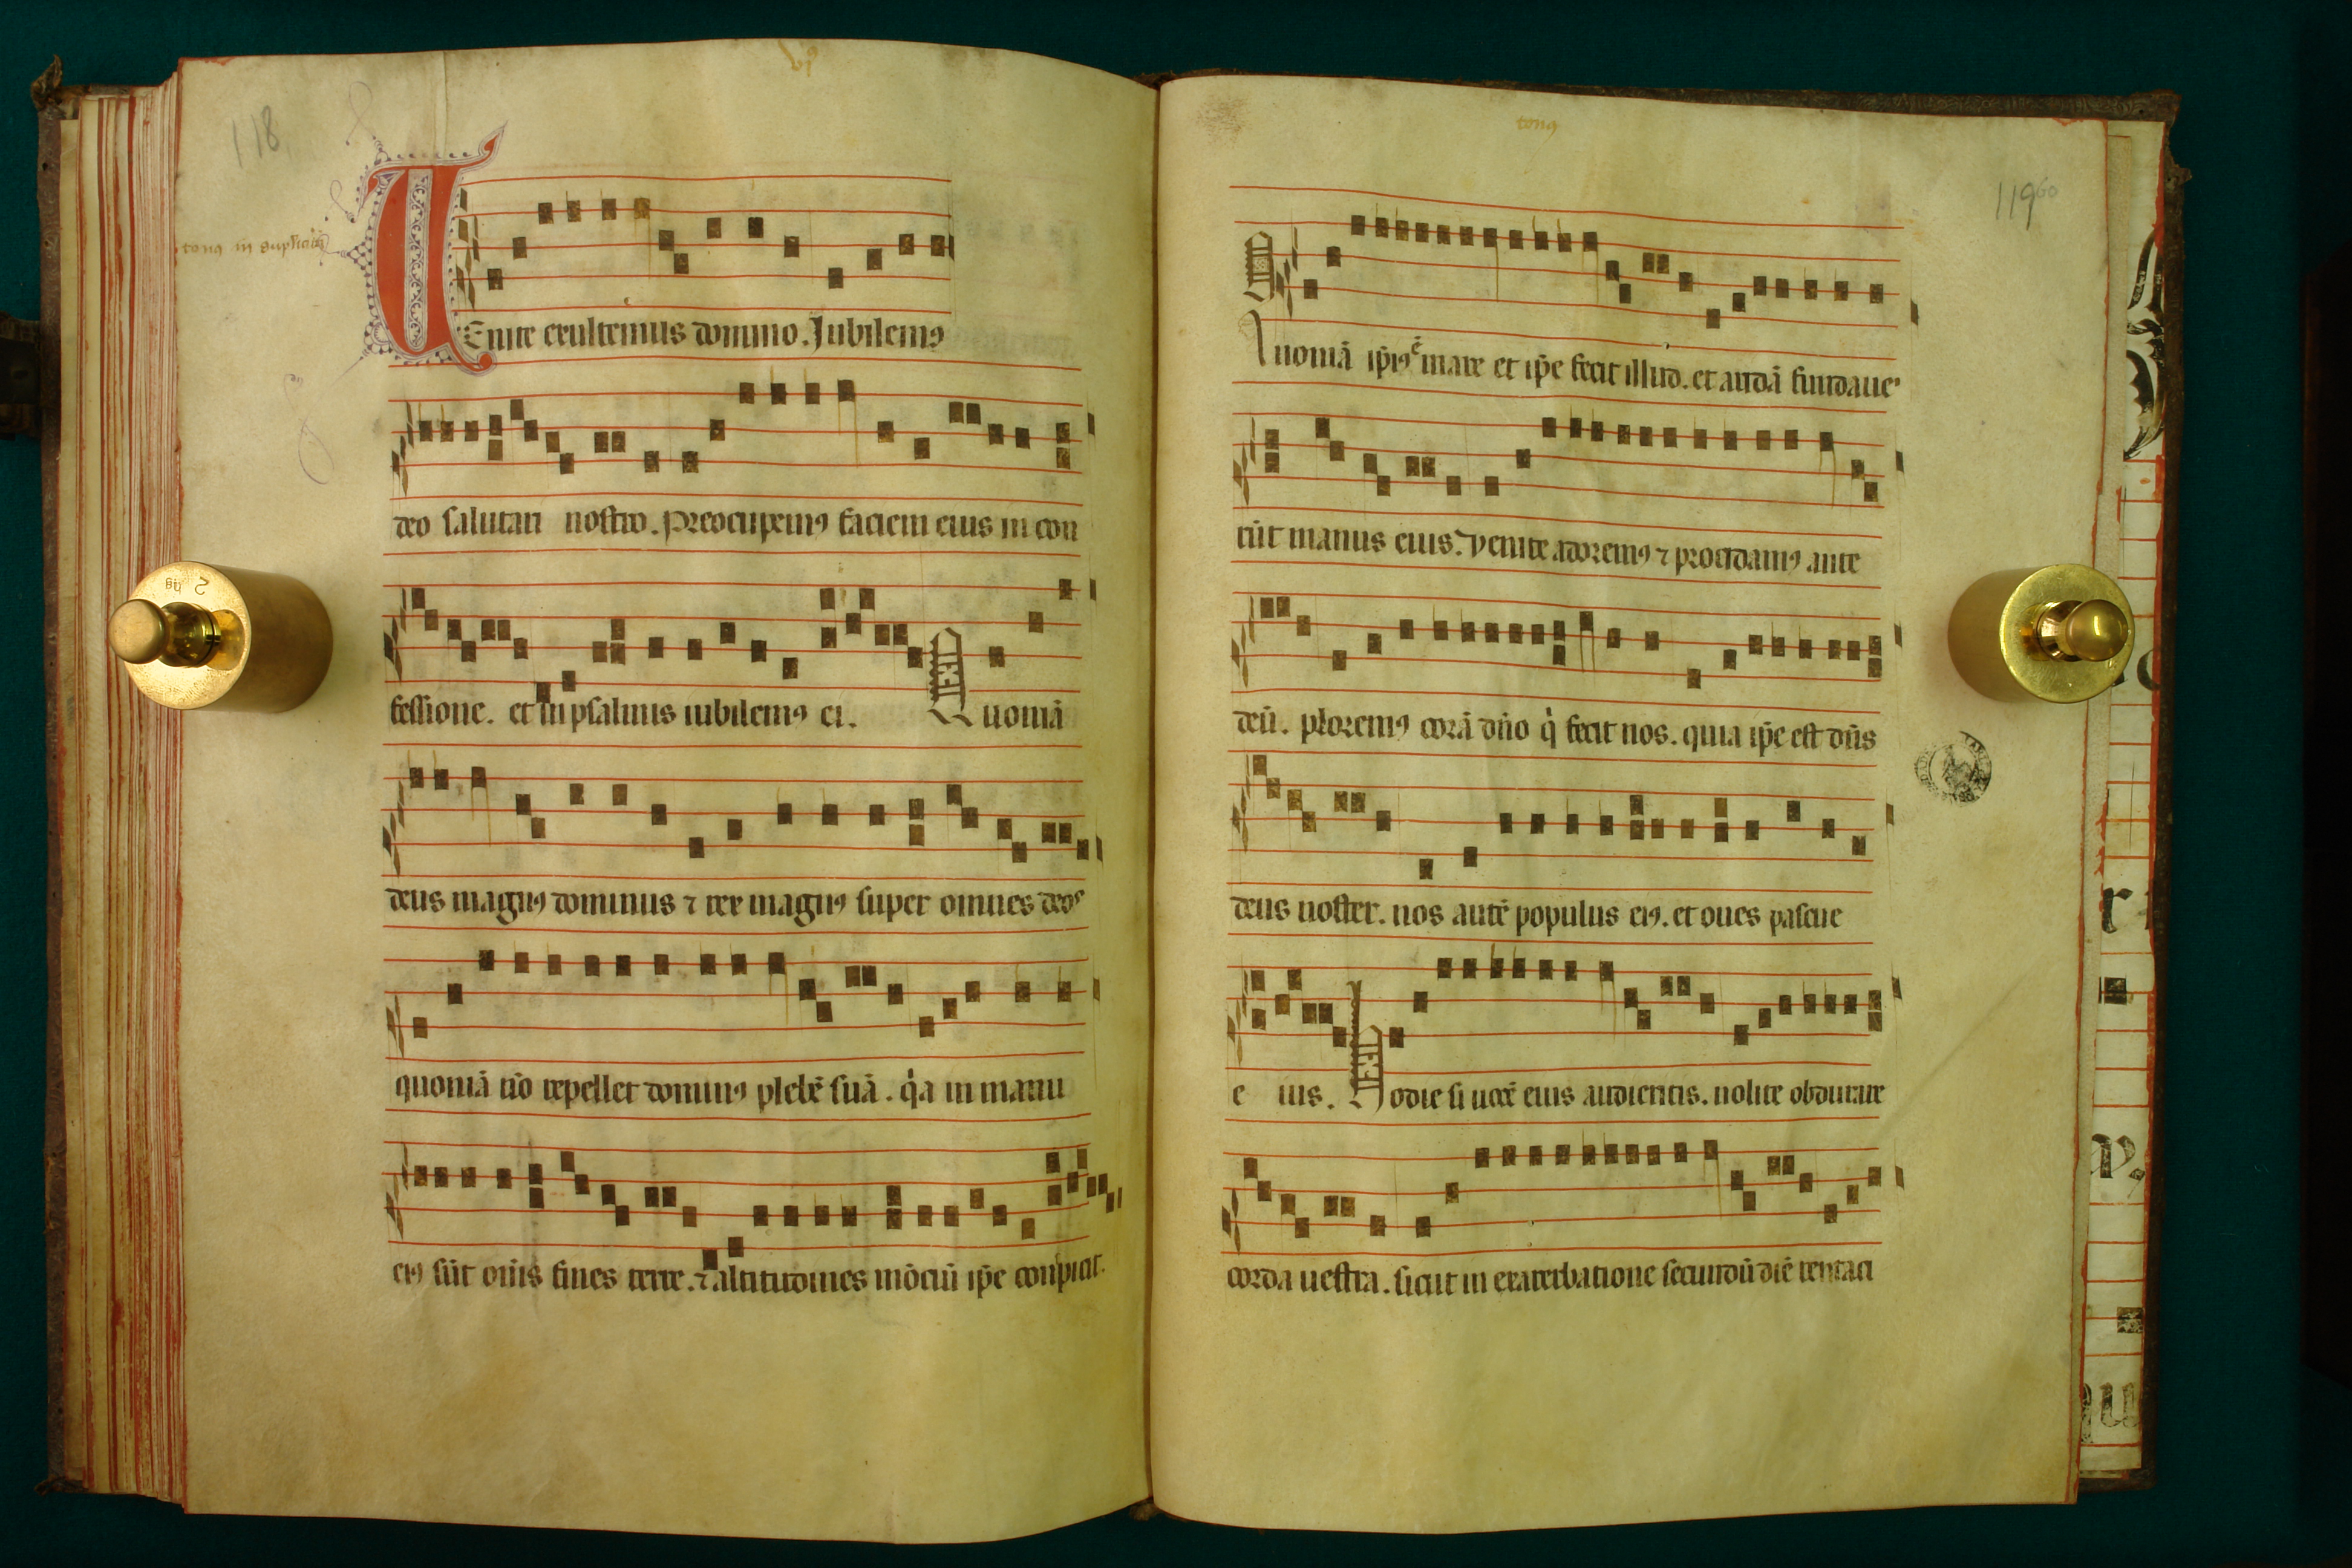 vj⁹
118
tonꝰ in duplicibꝫ
VEnite exultemus domino. Jubilemꝰ
deo salutari nostro. Preocupemꝰ faciem eius in con
fessione. et in psalmis iubilemꝰ ei. Quoniā
deus magnꝰ dominus ⁊ rex magnꝰ super omnes deos
quoniā nō repellet dominꝰ plebē suā. qͥa in manu
eiꝰ sūt om̄s fines terre. ⁊ altitudines mōciū ip̄e conspicit.
tonꝰ
119 60
Quoniā ip̄iꝰ ē mare et ip̄e fecit illud. et aridā fundaue
rūt manus eius. Venite adoremꝰ ⁊ procidamꝰ ante
deū. ploremꝰ corā dn̄o qͥ fecit nos. quia ip̄e est dn̄s
deus noster. nos autē populus eiꝰ. et oues pascue
e ius. Hodie si uocē eius audieritis. nolite obdurare
corda uestra. sicut in exacerbatione secundū diē temtaci